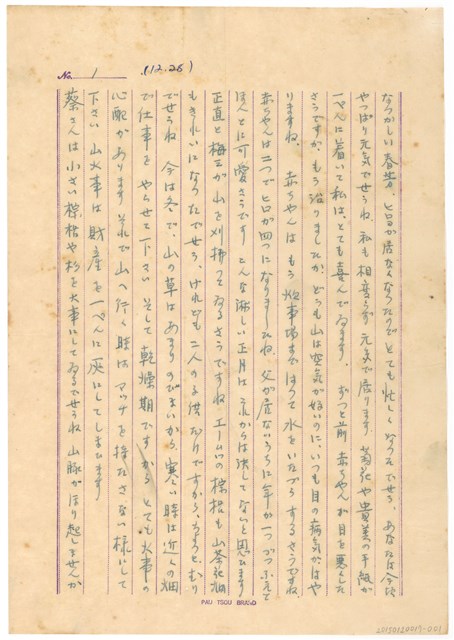 No. 1 (12.26)
なつかしい春芳、ヒロが居なくなつたのでとても忙しくなつたでせう、あなたは今も
やつぱり元気でせうね 私も相変らず元気で居ります 菊花や貴美の手紙が
一ぺんに着いて私は、とても喜んでゐます。 ずつと前 赤ちやんが目を悪くした
さうですが、もう治りましたか、どうも山は空気が好いのに、いつも目の病気がはや
りますね。 赤ちやんはもう炊事場まではつて水をいたづらするさうですね、
赤ちやんは二つでヒロが四つになりましたね、父が居ないうちに年が一つづつふえて
ほんとに可愛さうです こんな淋しい正月はこれからは決してないと思ひます
正直と梅三が山を刈拂つてゐるさうですね エームーの棕梠も山茶社畑
もきれいになつたでせう、けれども二人の子供だけですから、ちよつとむり
でせうね 今は冬で、山の草はあまりのびないから、寒い時は近くの畑
で仕事をやらせて下さい そして乾燥期ですからとても火事の
心配があります それで山へ行く時はマツチを持たさない様にして
下さい 山火事は財産を一ぺんに灰にしてしまひます
蔡さんは小さい棕梠や杉を大事にしてゐるでせうね 山豚がほり起しませんか
PAU TSOU BRAND
20130120017-021